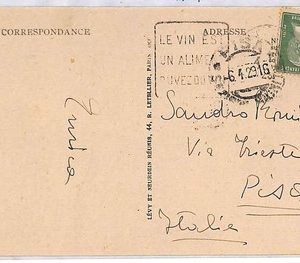 CORRESPONDANCE
ADRESSE
LE VIN EST
UN ALIME
BUVEZ DU
6.4.29 16
Enrica
LÉVY ET NEURDEIN RÉUNIS, 44, R. LETELLIER, PARIS
Sandro
Via Trieste
Pisa
Italie